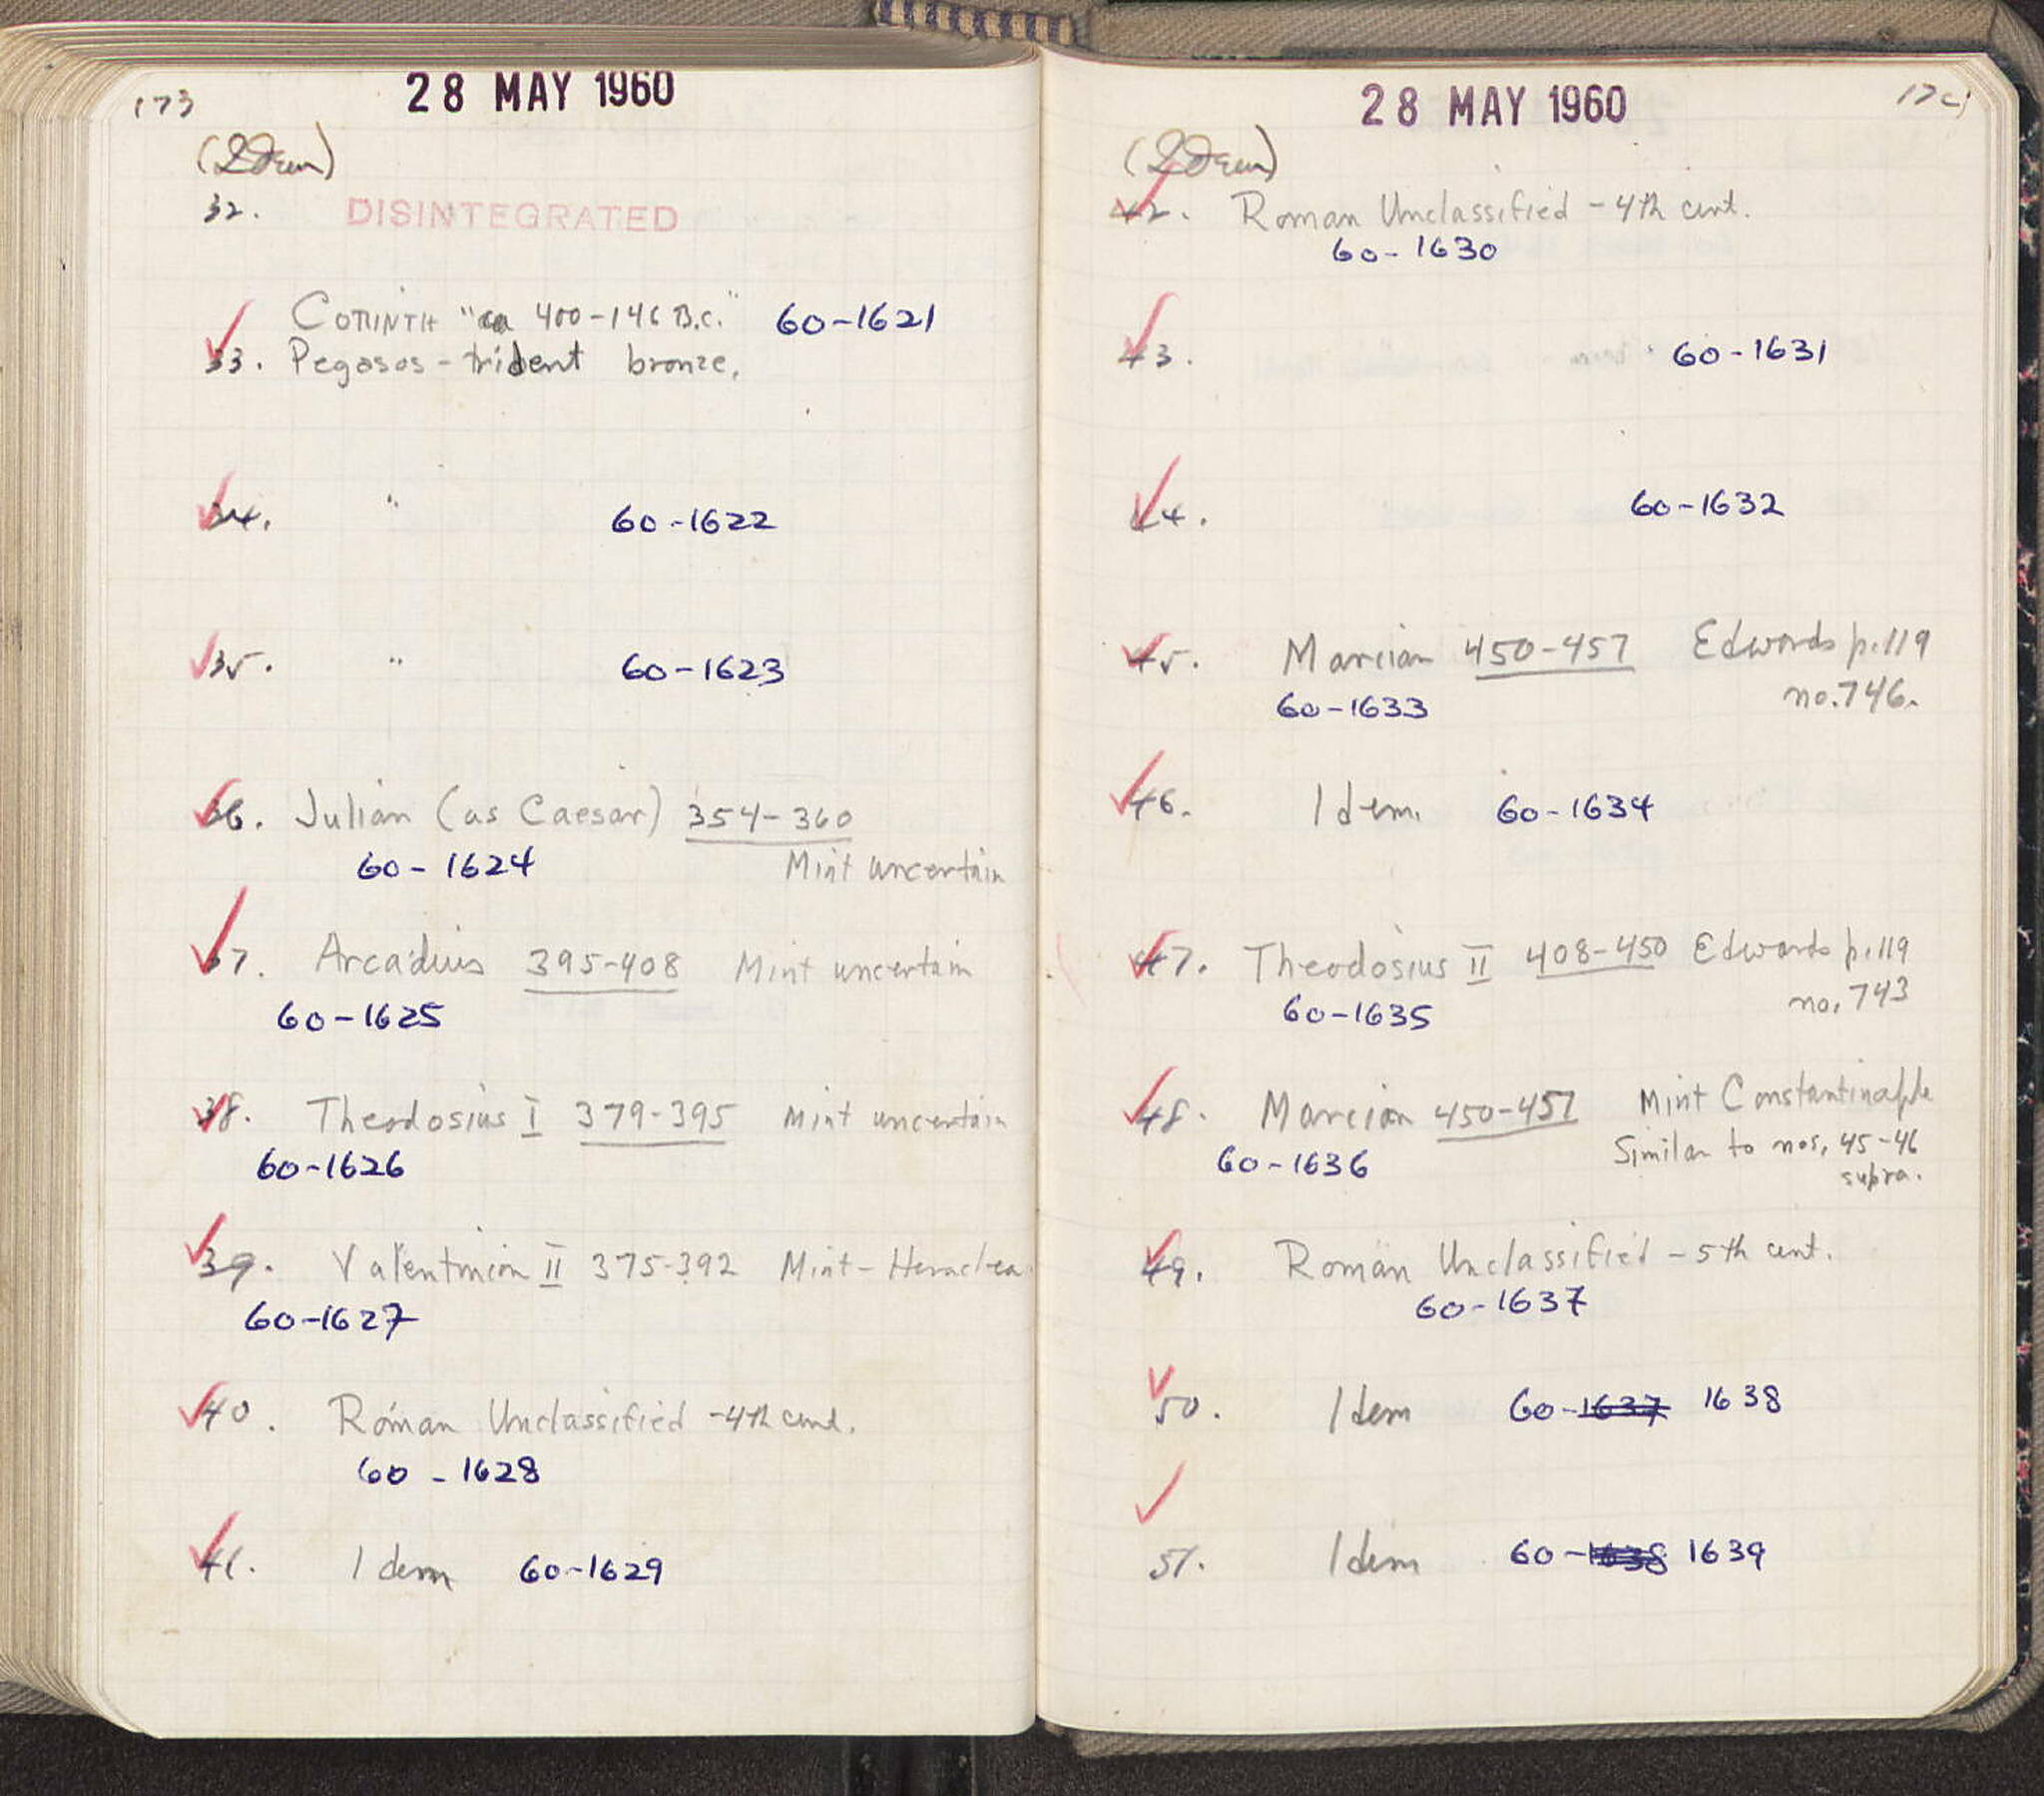 173
28 MAY 1960
32. DISINTEGRATED
CORINTH "ca 400-146 B.C." 60-1621
33. Pegasos - trident bronze.
34. " 60-1622
35. " 60-1623
36. Julian (as Caesar) 354-360
60-1624 Mint uncertain
37. Arcadius 395-408 Mint uncertain
60-1625
38. Theodosius I 379-395 Mint uncertain
60-1626
39. Valentinian II 375-392 Mint-Heraclea
60-1627
40. Roman Unclassified -4th cent.
60-1628
41. Idem 60-1629
28 MAY 1960
42. Roman Unclassified - 4th cent.
60-1630
43. 60-1631
44. 60-1632
45. Marcian 450-457 Edwards p.119
60-1633 no.746.
46. Idem. 60-1634
47. Theodosius II 408-450 Edwards p.119
60-1635 no. 743
48. Marcian 450-457 Mint Constantinople
60-1636 Similar to nos. 45-46
supra.
49. Roman Unclassified - 5th cent.
60-1637
50. Idem 60-1637 1638
51. Idem 60-1638 1639